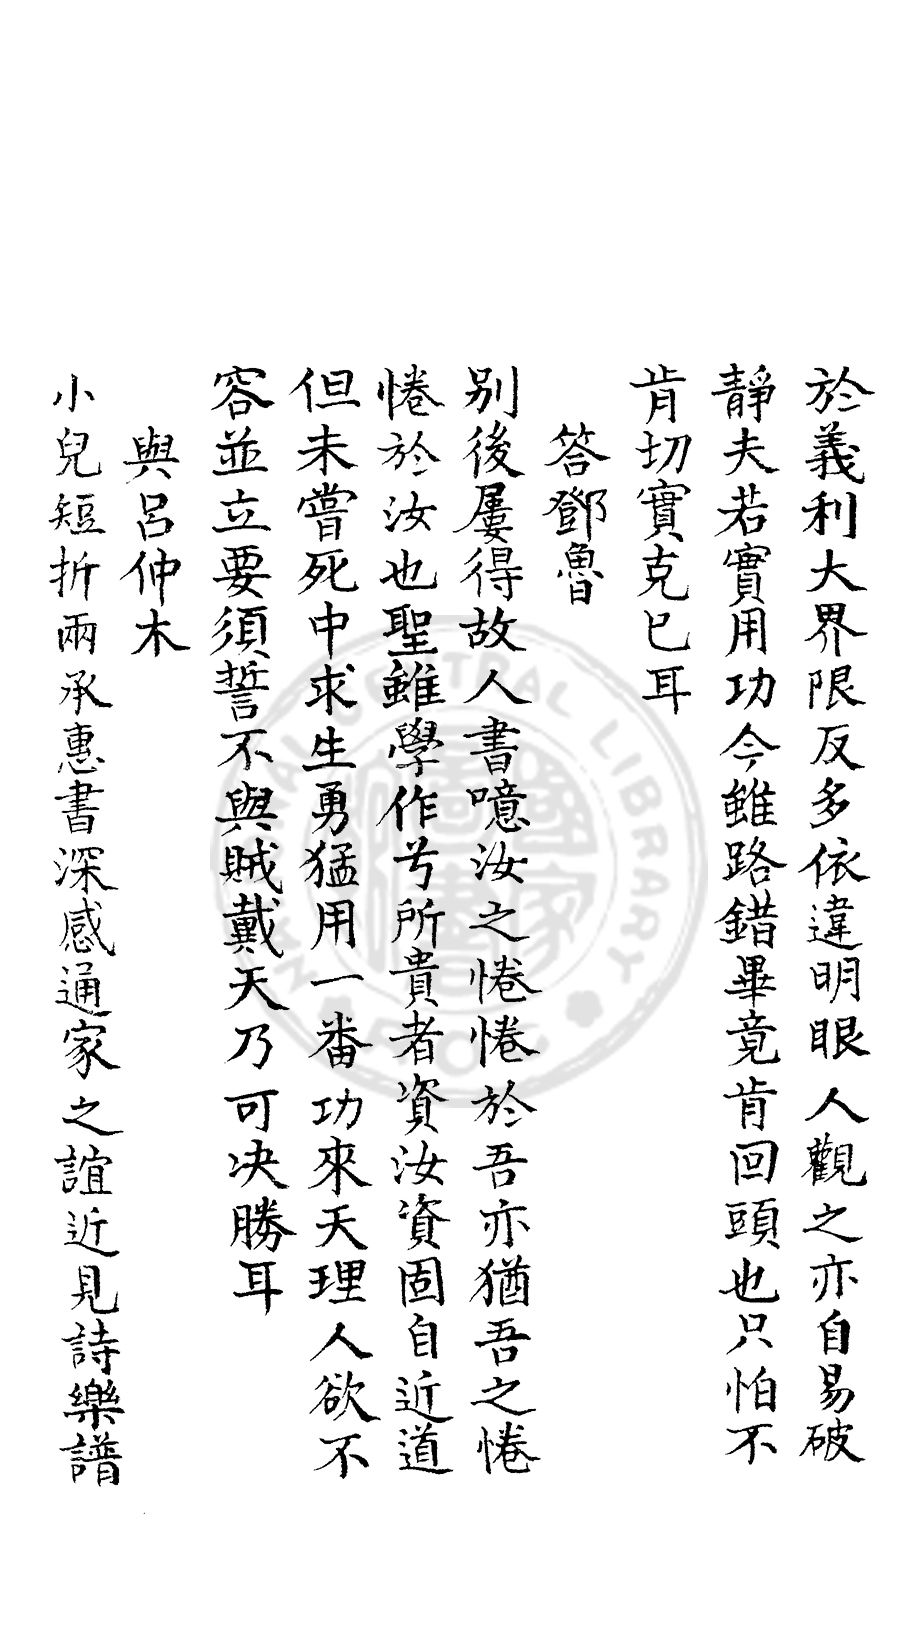 於義利大界限反多依違明眼人觀之亦自易破
靜夫若實用功今雖路錯畢竟肯回頭也只怕不
肯切實克已耳
答鄧魯
別後屢得故人書噫汝之惓惓於吾亦猶吾之惓
惓於汝也聖雖學作兮所貴者資汝資固自近道
但未嘗死中求生勇猛用一番功來天理人欲不
容並立要須誓不與賊戴天乃可决勝耳
與呂仲木
小兒短折兩承惠書深感通家之誼近見詩樂譜
NATIONAL CENTRAL LIBRARY